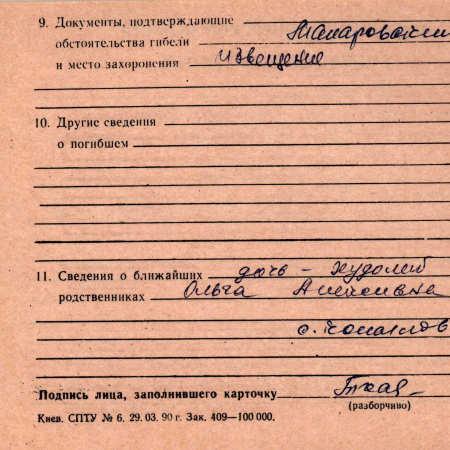 9. Документы, подтверждающие
обстоятельства гибели Макаровский
и место захоронения извещение
10. Другие сведения
о погибшем
11. Сведения о ближайших дочь – Худолей
родственниках Ольга
с.
Подпись лица, заполнившего карточку
(разборчиво)
Киев. СПТУ № 6. 29. 03. 90 г. Зак. 409—100 000.